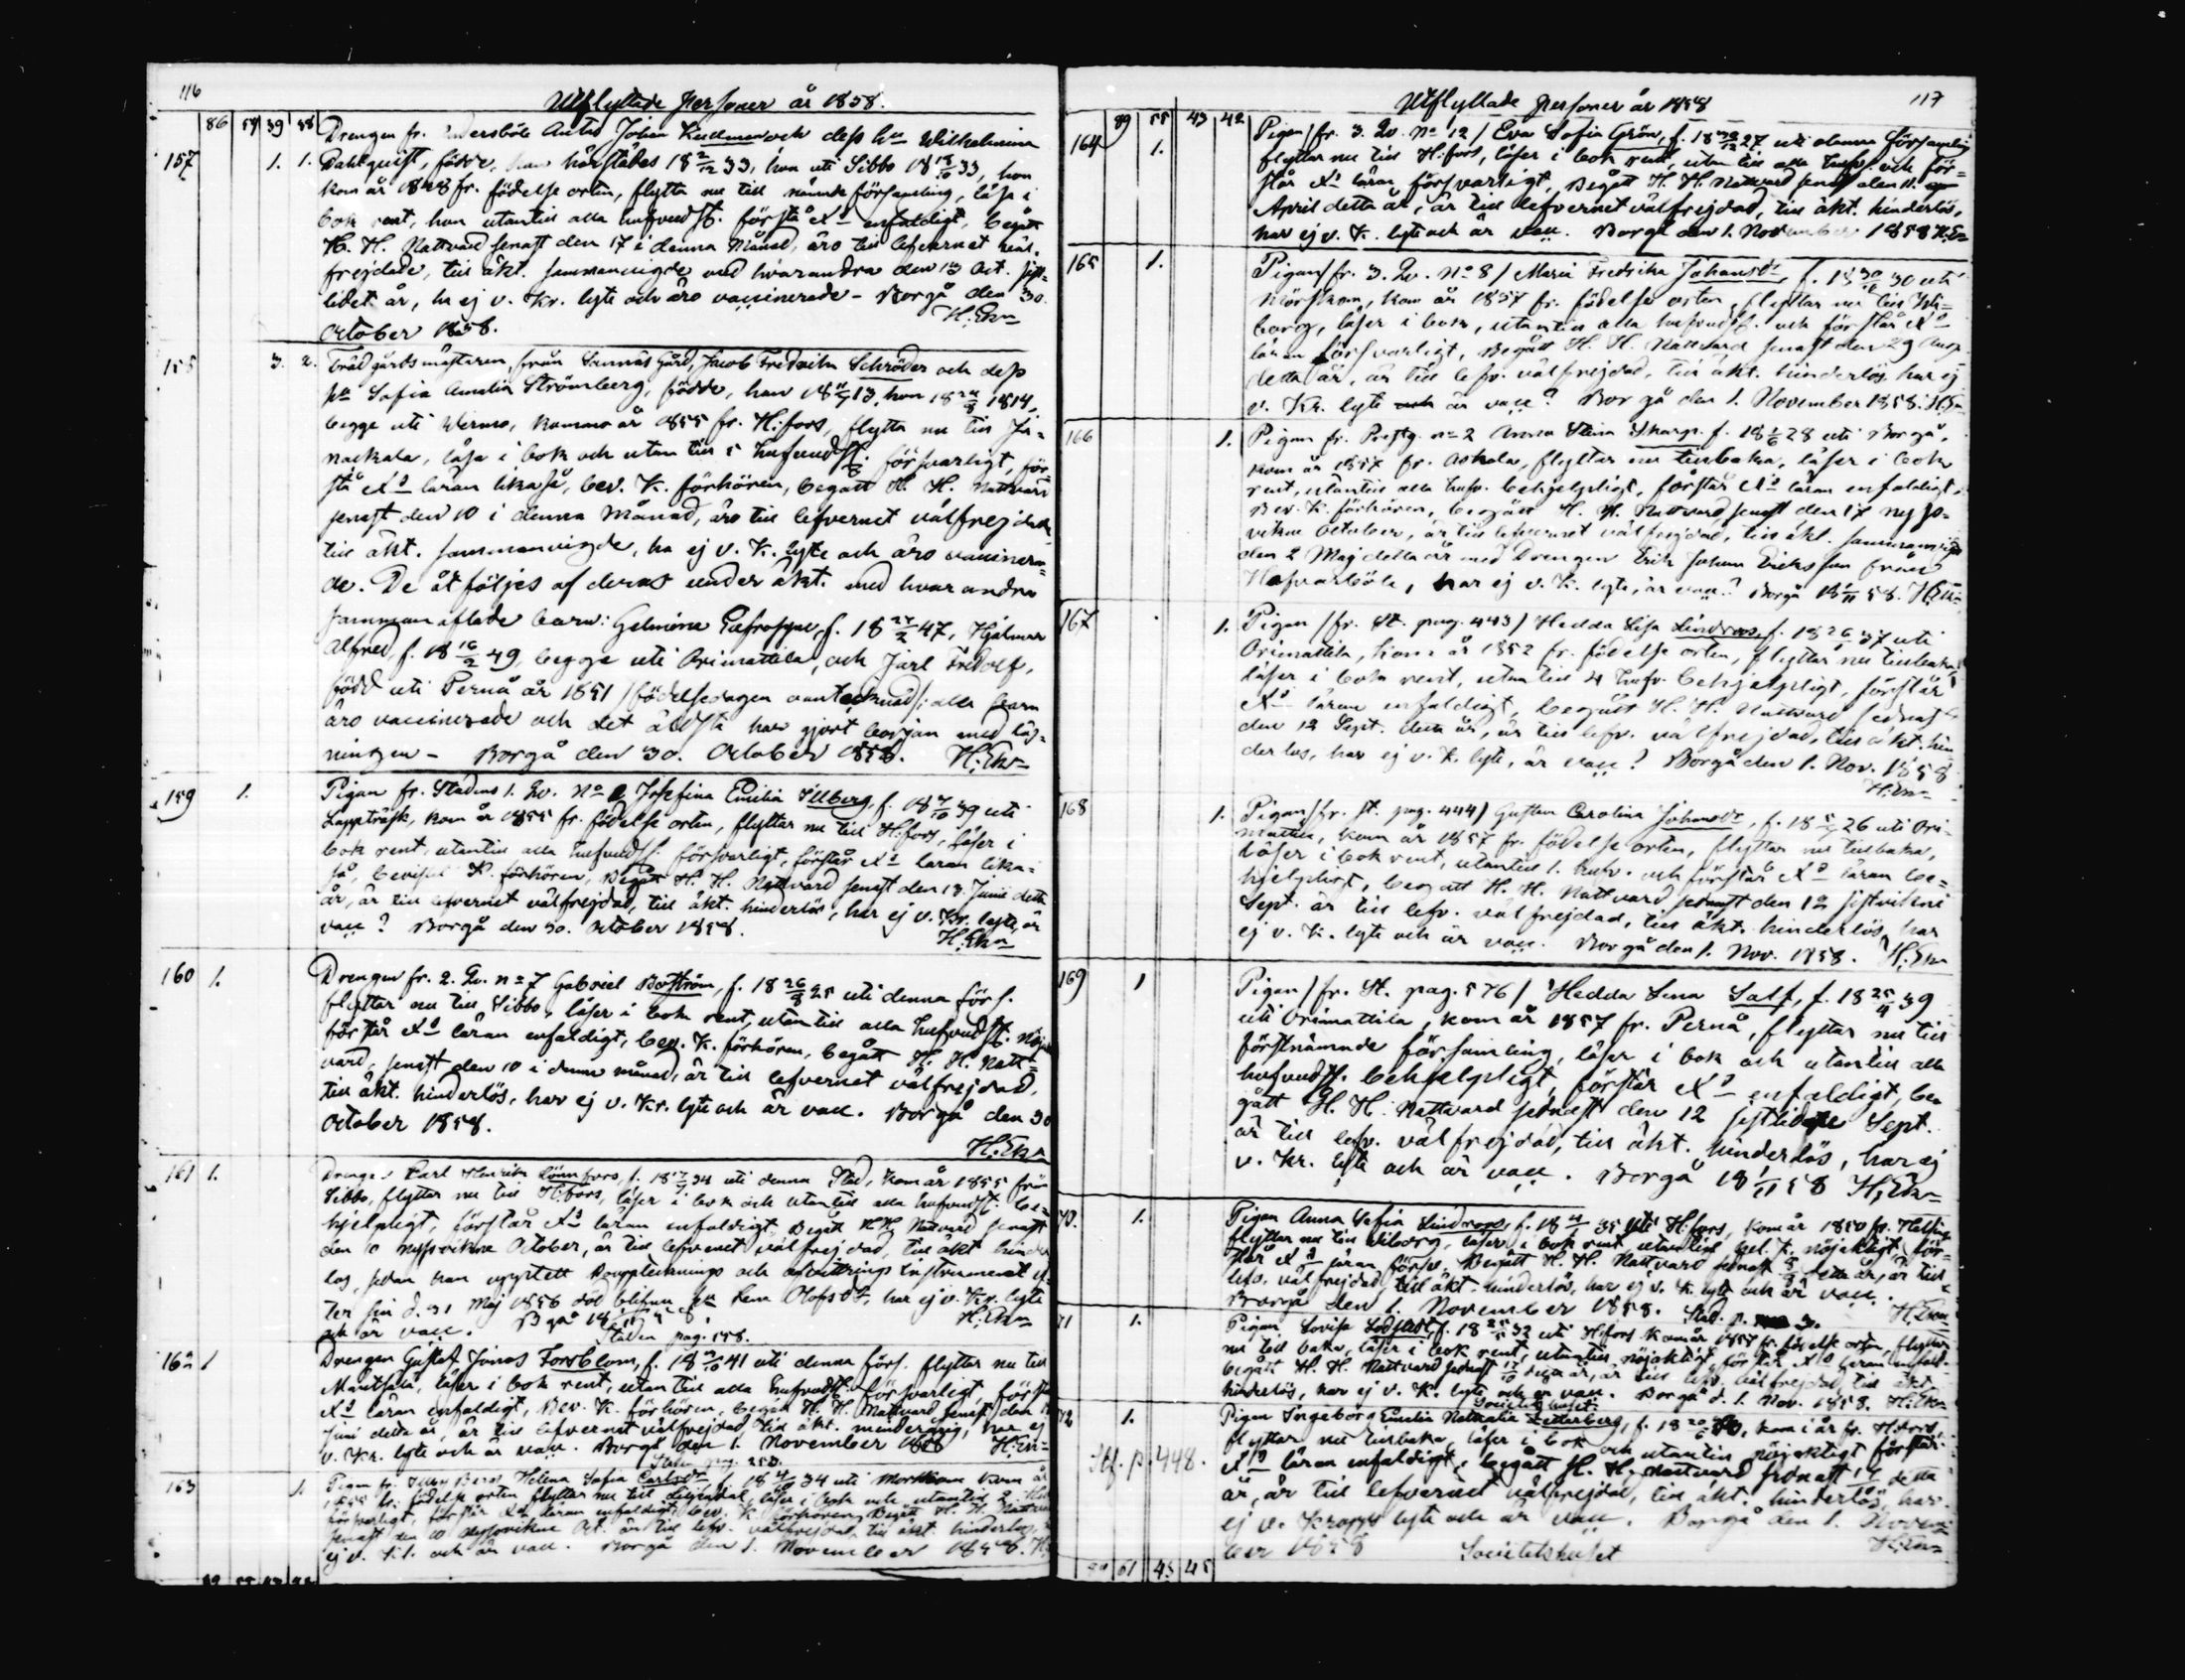 116
Utflyttade Personer år 1858.
86 54 39 38
157 1. 1. Drengen fr. Andersböle Johan Lindman och dess hu Wilhelmina
Dahlquist, födde, han härstädes 18 2/12 33, hon uti Sibbo 33, hon
kom år 1848 fr. födelse orten, flytta nu till nämnde församling, läsa i
bok rent, hon utantill alla hufvudst. förstå Xs enfaldigt, begått
H. H. Nattvard senast den 17 i denna Månad, äro till lefvernet väl-
frejdade, till äkt. sammanvigde med hvarandra den Oct. sist-
lidet år, ha ej v. Kr. lyte och äro vaccinerade - Borgå den 30.
October 1858. H:Ekn
158 3. 2. Trädgårdsmästaren, från Sannäs Gård, Jacob Fredrik Schröder och dess
hu Sofia Amalia Strömberg, födde, han 13, hon 1814,
begge uti Wirmo, kommo år 1855 fr. H:fors, flytta nu till Ja-
nackala, läsa i bok och utantill 5 hufvudst. försvarligt, för-
stå Xs läran likaså, bev. K. förhören, begått H. H. Nattvard
senast den 10 i denna Månad, äro till lefvernet välfrejdade
till äkt. sammanvigde, ha ej v. K. lyte och äro vaccinera-
de. De åtföljes af deras under äkt. med hvarandra
sammanaflade barn: Gelmina Eufrosyne, f. 18 24/2 47, Hjalmar
Alfred, f. 18 16/2 49, begge uti Orimattila, och Jarl Fridolf,
född uti Pernå år 1851 /födelsedagen oantecknad/: alla barn
äro vaccinerade och det äldsta har gjort början med läs-
ningen - Borgå den 30. October 1858. H:Ekn
159 1. Pigan fr. Stadens 1. Qv. No 2 Josefina Emilia Illberg, f. 39 uti
Lappträsk, kom år 1855 fr. födelse orten, flyttar nu till H:fors, läser i
bok rent, utantill alla hufvudst. försvarligt, förstår Xs läran lika-
så, bevistat K. förhören, Begått H. H. Nattvard senast den 13. Junii detta
år, är till lefvernet välfrejdad, till äkt. hinderlös, har ej v. Kr. lyte, är
vacc? Borgå den 30. October 1858. H:Ekn
160 1. Drengen fr. 2. Qv. No 7 Gabriel Boström, f. 18 26/9 25 uti denna förs.
flyttar nu till Sibbo, läser i bok rent, utantill alla hufvudst.
förstår Xs läran enfaldigt, bev. K. förhören, begått H. H. Natt-
vard, senast den 10 i denna månad, är till lefvernet välfrejdad,
till äkt. hinderlös, har ej v. Kr. lyte och är vacc. Borgå den 30
October 1858. H:Ekn
161 1. Drengen Carl Henrik Lönnfors, f. 34 uti denna Stad, kom år 1855 från
Sibbo, flyttar nu till H:fors, läser i bok och utantill alla hufvudst. be-
hjelpligt, förstår Xs läran enfaldigt, Begått H.H. Nattvard senast
den 10 nyssvikne October, är till lefvernet välfrejdad, till äkt. hinder-
lös, sedan han upprättat Bouppteckings och Instrument ef-
ter sin d. 31 Maj 1856 död blifna hu Lena Olofsdr, har ej v. Kr. lyte
och är vacc. H:Ekn
Staden pag. 158.
162 1 Drengen Gustaf Jonas Forsblom, f. 41 uti denna förs. flyttar nu till
Mäntsälä, läser i bok rent, utantill alla hufvudst. försvarligt, förstår
Xs läran enfaldigt, Bev. K. förhören, begått H. H. Nattvard senast den
Juni detta år, är till lefvernet välfrejdad, till äkt. minderårig, har ej
v. Kr. lyte och är vacc. Borgå den 1. November 1858 H:Ekn
163 1. Pigan fr. Helena Sofia Carlsdr f. 34 uti Mörskom kom år
1855 fr. födelse orten flyttar nu till Liljendal, läser i bok och utantill 2
försvarligt, förstår Xs läran enfaldigt, bev. K. förhören, Begått H. H. Nattvard
senast den 10 nyssvikne Oct. är till lefv. välfrejdad, till äkt. hinderlös,
ej v. K. l. och är vacc. Borgå den 1. November 1858.
Utflyttade Personer år 1858 117
89 55 43 42
164 1. Pigan /fr. 3. Qv. No 12/ Eva Sofia Grön, f. 27 uti denna församling
flyttar nu till H:fors, läser i bok rent, utantill alla hufv. och för-
står Xs läran försvarligt, Begått H. H. Nattvard senast den 11.
April detta år, är till lefvernet välfrejdad, till äkt. hinderlös,
har ej v. K. lyte och är vacc. Borgå den 1. November 1858 H:Ek
165 1. Pigan /fr. 3. Qv. No 8/ Maria Fredrika Johansdr, f. 30 uti
Mörskom, kom år 1857 fr. födelse orten, flyttar nu till Wi-
borg, läser i bok, utantill alla hufvudst. och förstår Xs
läran försvarligt, Begått H. H. Nattvard senast den 29 Aug.
detta år, är till lefv. välfrejdad, till äkt. hinderlös, har ej
v. Kr. lyte och är vacc? Borgå den 1. November 1858. H:Ek
166 1. Pigan fr. Prestg. No 2 Anna Stina Skarp. f. 18 1/6 28 uti Borgå,
kom år 1857 fr. Askola, flyttar nu tillbaka, läser i bok
rent, utantill alla hufv. behjelpligt, förstår Xs läran enfaldigt,
Bev. K. förhören, begått H. H. Nattvard senast den 17 nyss-
vikne October, är till lefvernet välfrejdad, till äkt. sammanvigd
den 2 Maj detta år med Drengen Erik Johan Eriksson från
har ej v. K. lyte, är vacc? Borgå 18 1/11 58. H:Ekn
167 1. Pigan /fr. St. pag. 443/ Hedda Lisa Lindroos, f. 37 uti
Orimattila, kom år 1852 fr. födelse orten, flyttar nu tillbaka,
läser i bok rent, utantill 4 hufv. behjelpligt, förstår
Xs läran enfaldigt, begått H. H. Nattvard sednast
den 12 Sept. detta år, är till lefv. välfrejdad, till äkt. hin-
derlös, har ej v. K. lyte, är vacc? Borgå den 1. Nov. 1858
H:Ekn
168 1. Pigan /fr. St. pag. 444/ Gustava Carolina Johansdr, f. 26 uti Ori-
mattila, kom år 1857 fr. födelse orten, flyttar nu tillbaka,
läser i bok rent, utantill 1. hufv. och förstår Xs läran be-
hjelpligt, begått H. H. Nattvard sednast den 12 sistvikne
Sept. är till lefv. välfrejdad, till äkt. hinderlös, har
ej v. K. lyte och är vacc. Borgå den 1. Nov. 1858. H:Ekn
169 1 Pigan /fr. St. pag. 576/ Hedda Lena Salf, f. 18 25/4 39
uti Orimattila, kom år 1857 fr. Pernå, flyttar nu till
förstnämnde församling, läser i bok och utantill alla
hufvudst. behjelpligt, förstår Xs enfaldigt, be-
gått H. H. Nattvard sednast den 12 sistlidne Sept.
är till lefv. välfrejdad, till äkt. hinderlös, har ej
v. Kr. lyte och är vacc. Borgå 18 1/11 58 H:Ekn
70. 1. Pigan Anna Sofia Lindroos, f. 35 uti H:fors, kom år 1850 fr. Helsinge
flyttar nu till Wiborg, läser i bok rent utantill nöjaktigt, för-
står Xs läran försv. Begått H. H. Nattvard sednast detta år, är till
lefv. välfrejdad, till äkt. hinderlös, har ej v. K. lyte och är vacc.
Borgå den 1. November 1858. H:Ekn
71 1. Pigan Lovisa f. 32 uti H:fors kom år 1857 fr. födelse orten, flyttar
nu tillbaka, läser i bok rent, utantill nöjaktigt, förstår Xs läran enfald.
begått H. H. Nattvard sednast detta år, är till lefv. välfrejdad till äkt.
hinderlös, har ej v. K. lyte och är vacc. Borgå d. 1. Nov. 1858. H:Ekn
Societetshuset
72 1. Pigan Ingeborg Emilia Nathalia Zetterberg, f. 40, kom i år fr. H:fors,
flyttar nu tillbaka, läser i bok och utantill nöjaktigt förstår
Stf. p. 448. Xs läran enfaldigt, begått H. H. Nattvard sednast detta
år, är till lefvernet välfrejdad, till äkt. hinderlös, har
ej v. Kropps lyte och är vacc. Borgå den 1. Novem-
ber 1858 Societetshuset H:Ekn
61 43 45